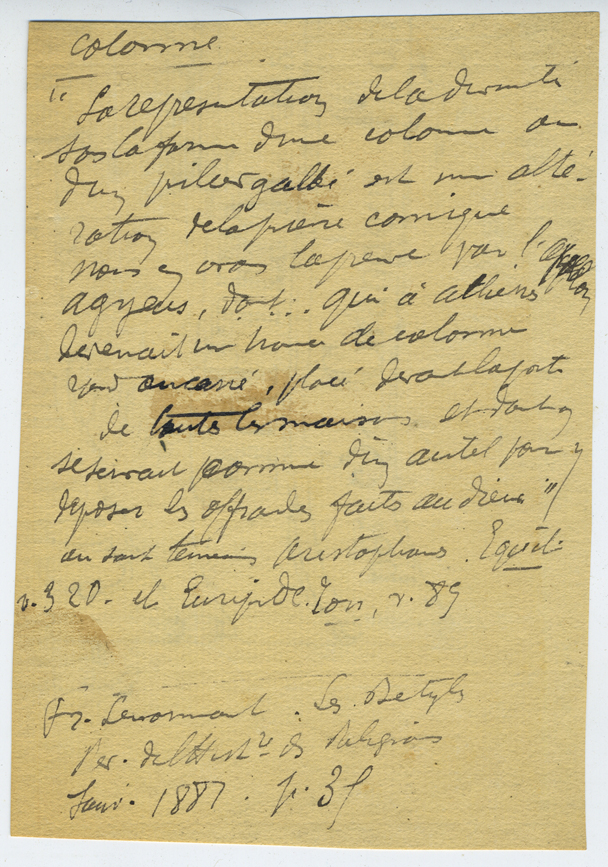 colonne
"La representation de la divinité
sous la forme d'une colonne ou
d'un pilier galbé est une alté-
ration de la pierre conique
nous en avons la preuve par l'
agyeus, dont... qui à Athènes
devenait un tronc de colonne
rond ou carré, placé devant la porte
de toutes les maisons et dont on
se servait comme d'un autel pour y
déposer les offrandes faites au dieu"
en sont temoins Aristophane. Equit.
v. 320. et Euripide. Ion, v. 89
Fr. Lenormant. Les Bétyles
Rev. de l'Hist.re des Religions
Janv. 1881. p. 35